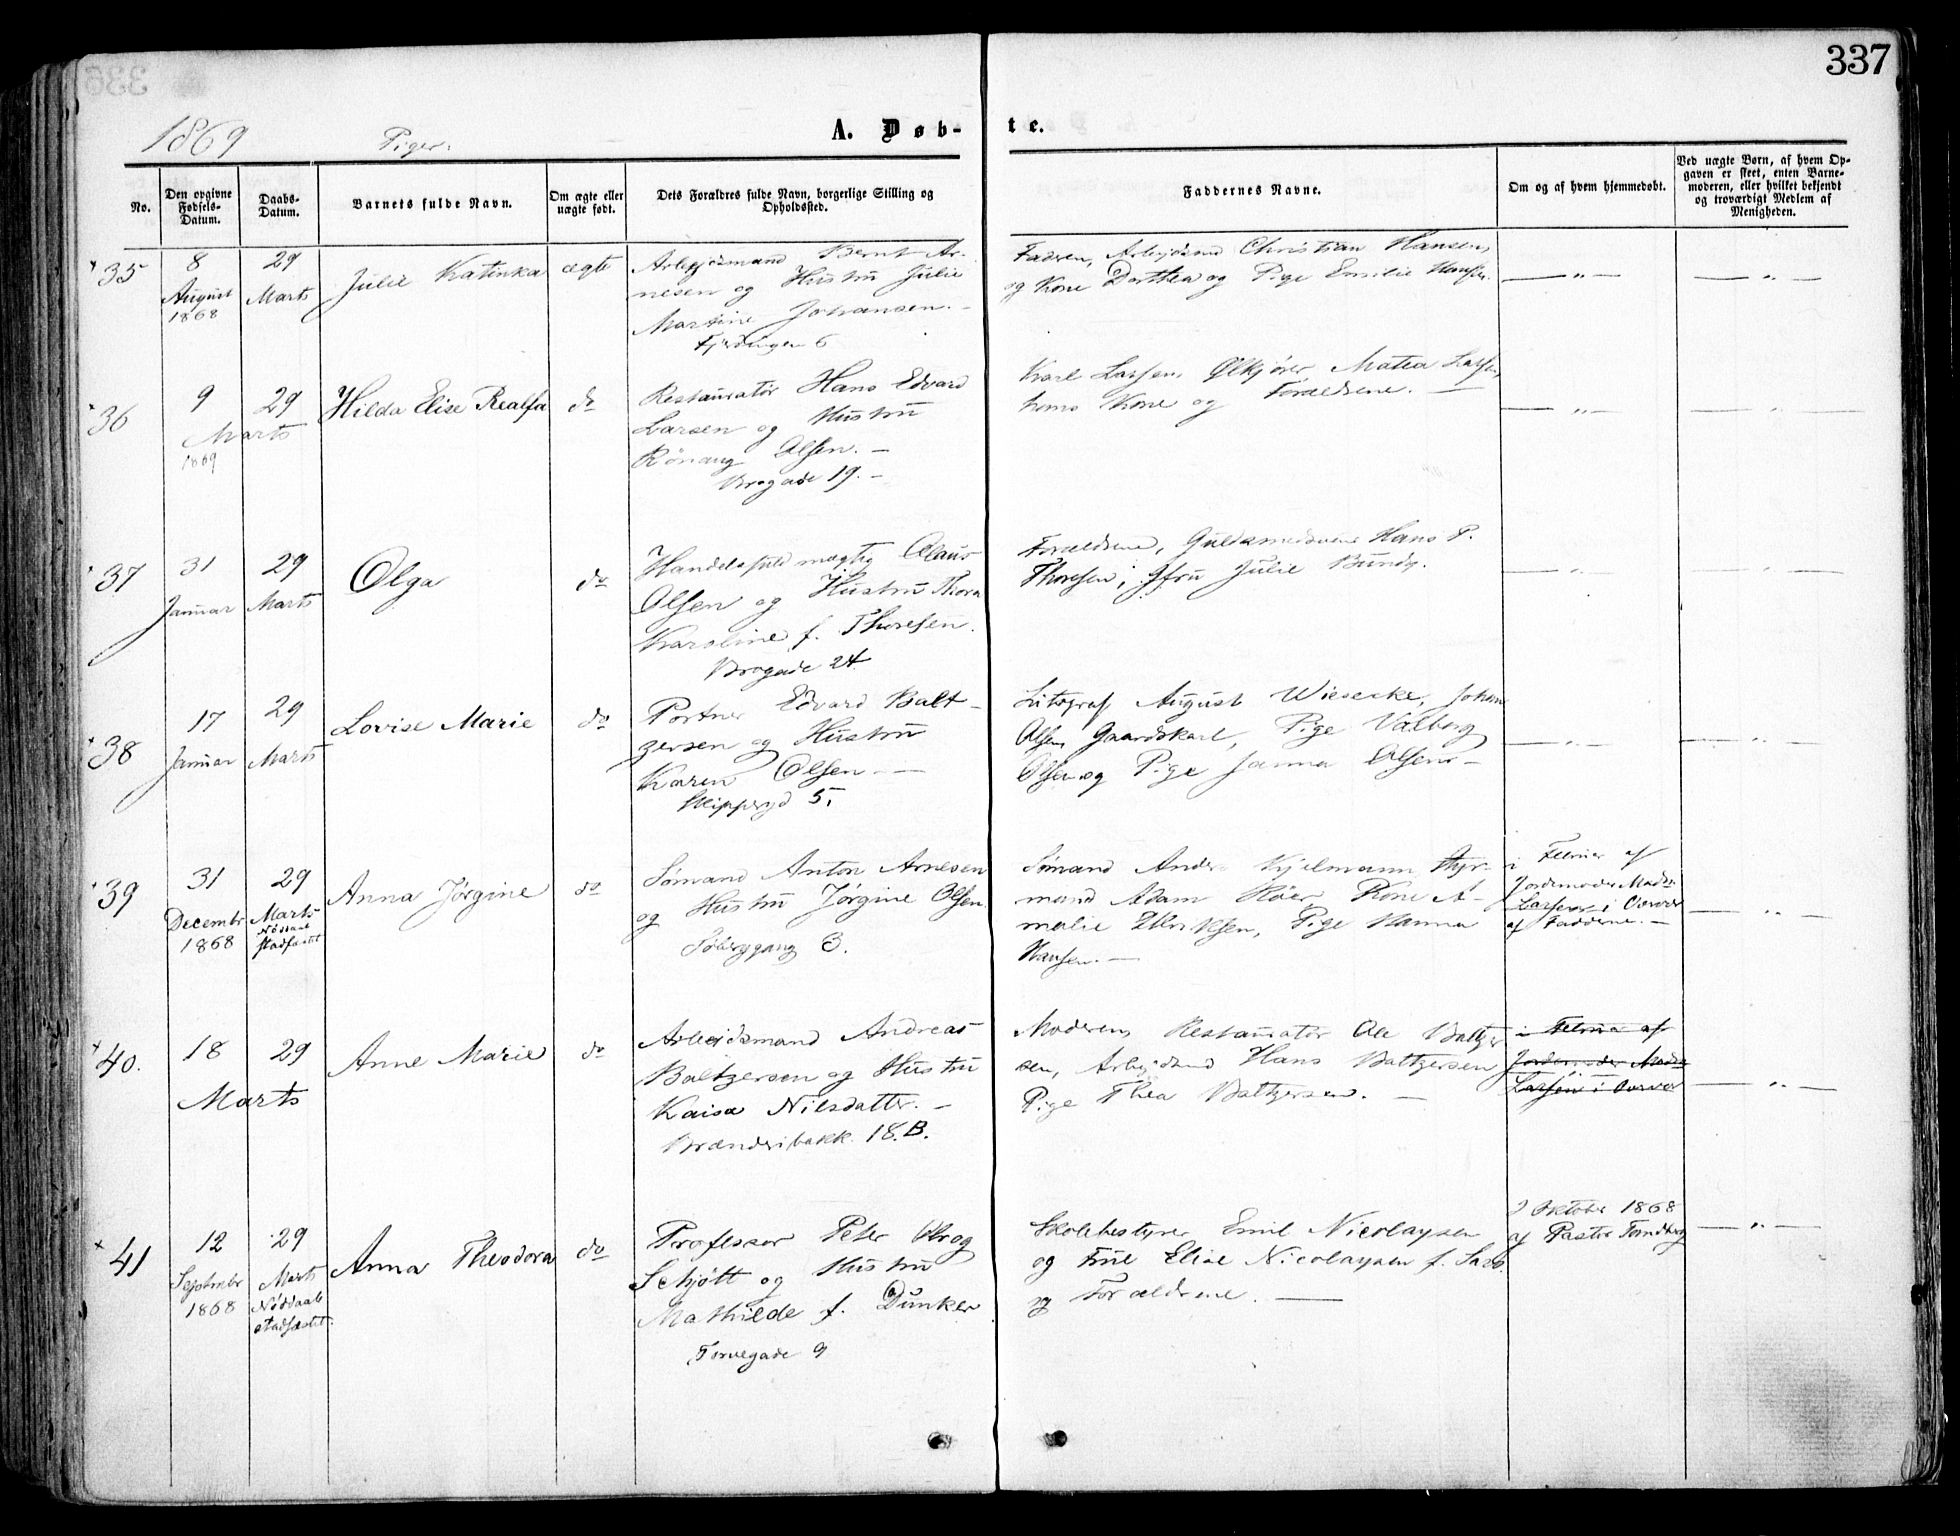 337
1869 Piger.
A. Døb- te.
No.
Den opgivne
Fødsels-
Datum.
Daabs-
Datum.
Barnets fulde Navn.
Om ægte eller
uægte født.
Dets Forældres fulde Navn, borgerlige Stilling og
Opholdssted.
Faddernes Navne.
Om og af hvem hjemmedøbt.
Ved uægte Børn, af hvem Op-
gaven er skeet, enten Barne-
moderen, eller hvilket bekjendt
og troværdigt Medlem af
Menigheden.
35
8
August
1868
29
Marts
Julie Katinka
ægte
Arbejdsmand Bernt Ar-
nesen og Hustru Julie
Martine Johansen. -
Fjerdingen 6
Faderen, Arbejdsmd Christian Hansen,
og Kone Dorthea og Pige Emilie Hansen.
— „ —
— „ —
36
9
Marts
1869
29
Hilda Elise Realfa
do
Restauratør Hans Edvard
Larsen og Hustru
Rønaug Olsen. -
Brogade 19. -
Karl Larsen, Ølkjører, Matea Larsen,
hans Kone og Forældrene. —
— „ —
— „ —
37
31
Januar
29
Marts
Olga
do
Handelsfuldmægtig Olaus
Olsen og Hustru Thora
Karoline f. Thoresen.
Brogade 24.
Forældrene, Guldsmedsvend Hans P.
Thoresen, Jfru Julie Bundy.
— „ —
— „ —
38
17
Januar
29
Marts
Lovise Marie
do
Portner Edvard Balt-
zersen og Hustru
Karen Olsen —
5.
Litograf August Wiesecke, Johan
Olsen, Gaardskarl, Pige Valborg
Olsen og Pige Janna Olsen. -
— „ —
— „ —
39
31
Decembr
1868
29
Marts
stadfæstet
Anna Jørgine
do
Sømand Anton Arnesen
og Hustru Jørgine Olsen.
3.
Sømand Anders Kjelmann, Styr-
mand Adam Høier, Kone A-
malie Henriksen, Pige Hanna
Hansen. —
i Februar af
Jordemoder Mad.
Larsen i Overvær
af Fadderne. -
— „ —
40.
18
Marts
29
Anne Marie
do
Arbeidsmand Andreas
Baltzersen og Hustru
Kaisa Nilsdatter. -
18.B.
Moderen, Restauratør Ole Baltzer
sen, Arbejdsmd Hans Baltzersen
Pige Thea Baltzersen. —
i Februar af
Jordemoder Mad.
Larsen i Overvær
— „ —
41
12
Septembr
1868
29
Marts
Nøddaab
stadfæstet.
Anna Theodora
do
Professor Peter Olrog
Schjøtt og Hustru
Mathilde f. Dunker
Torvegade 9
Skolebestyrer Emil Nicolaysen
og Frue Elise Nicolaysen f. Sars.
og Forældrene. —
2 Oktober 1868
af Pastor Tandberg
— „ —